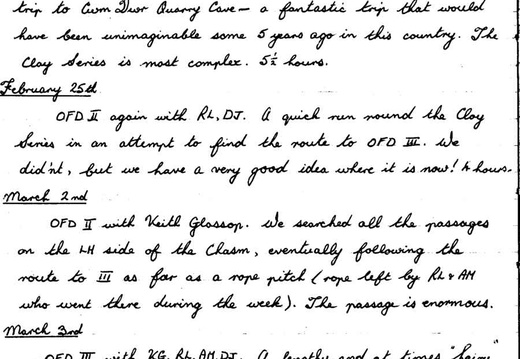 trip to Cwm Dwr Quarry Cave - a fantastic trip that would
have been unimaginable some 5 years ago in this country. The
Clay Series is most complex. 5½ hours.
February 25th
OFD II again with RL, DJ. A quick run round the Clay
Series in an attempt to find the route to OFD III. We
did'nt, but we have a very good idea where it is now! 4 hours.
March 2nd
OFD II with Keith Glossop. We searched all the passages
on the LH side of the Chasm, eventually following the
route to III as far as a rope pitch (rope left by RL & AM
who went there during the week). The passage is enormous.
March 3rd
OFD III with KG, RL, AM, DJ. A lengthy and at times "